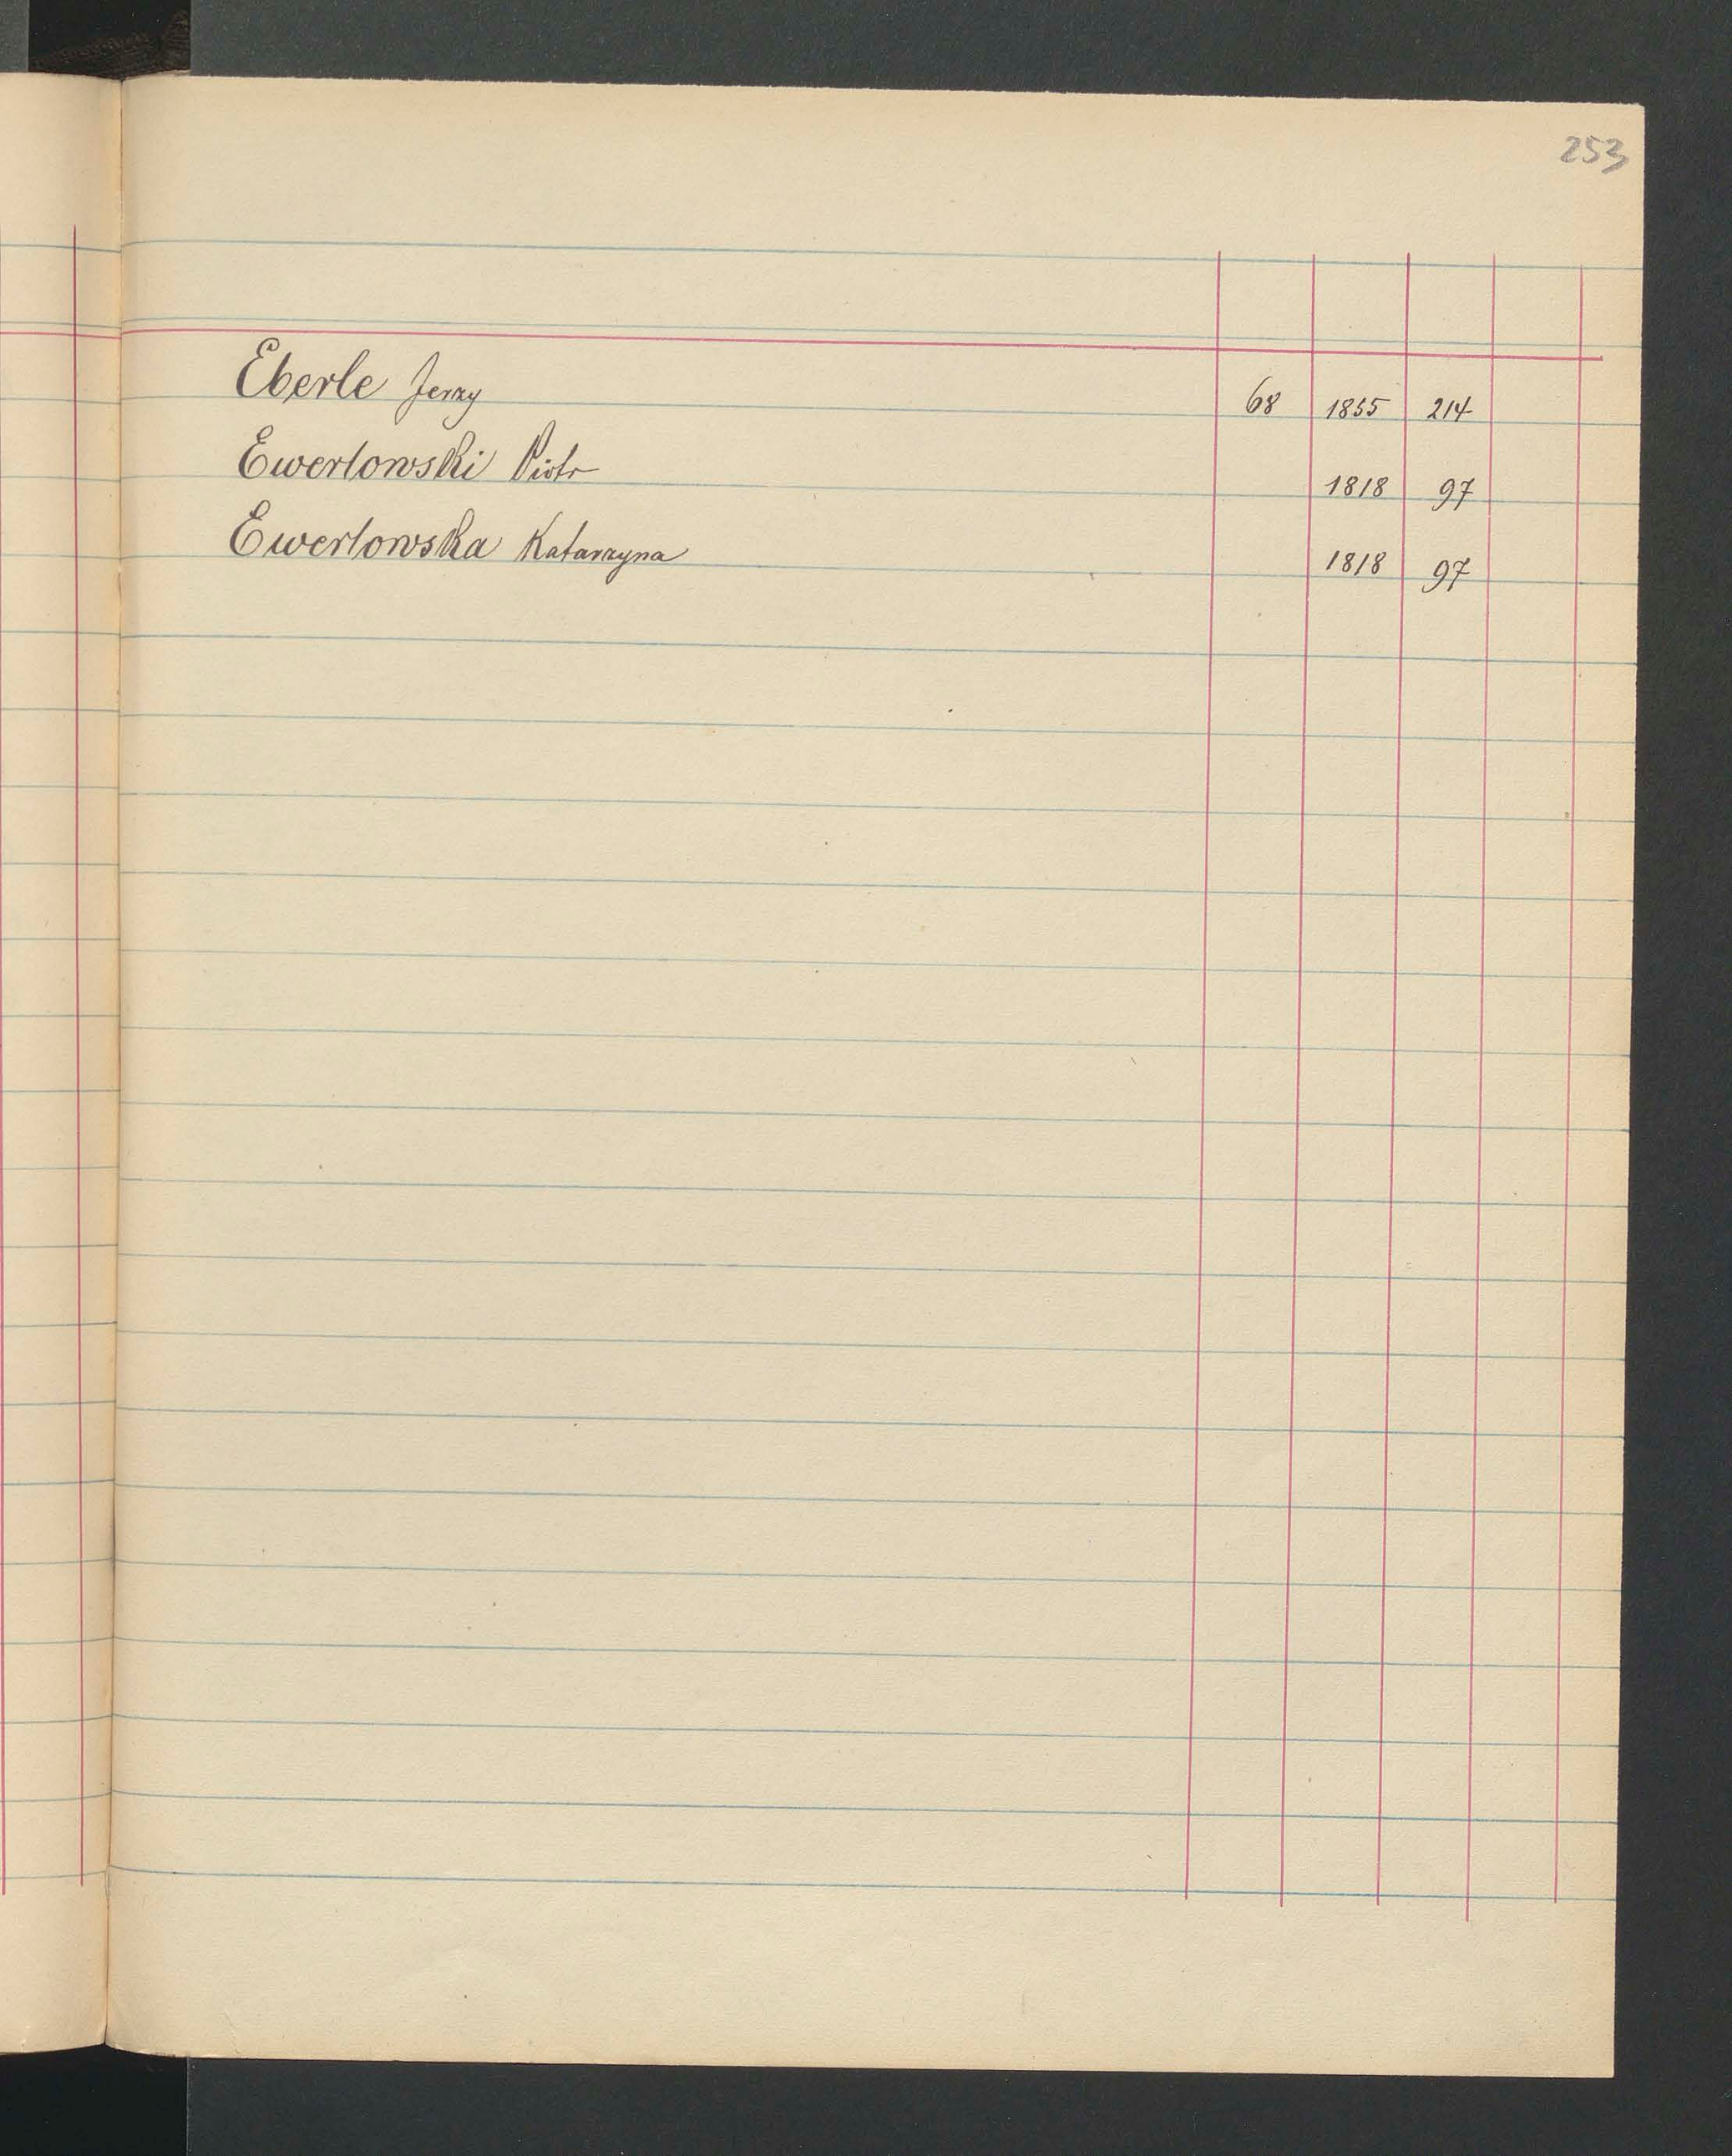 253
Eberle Jerzy 68 1855 214
Ewertowski Piotr 1818 97
Ewertowska Katarzyna 1818 97